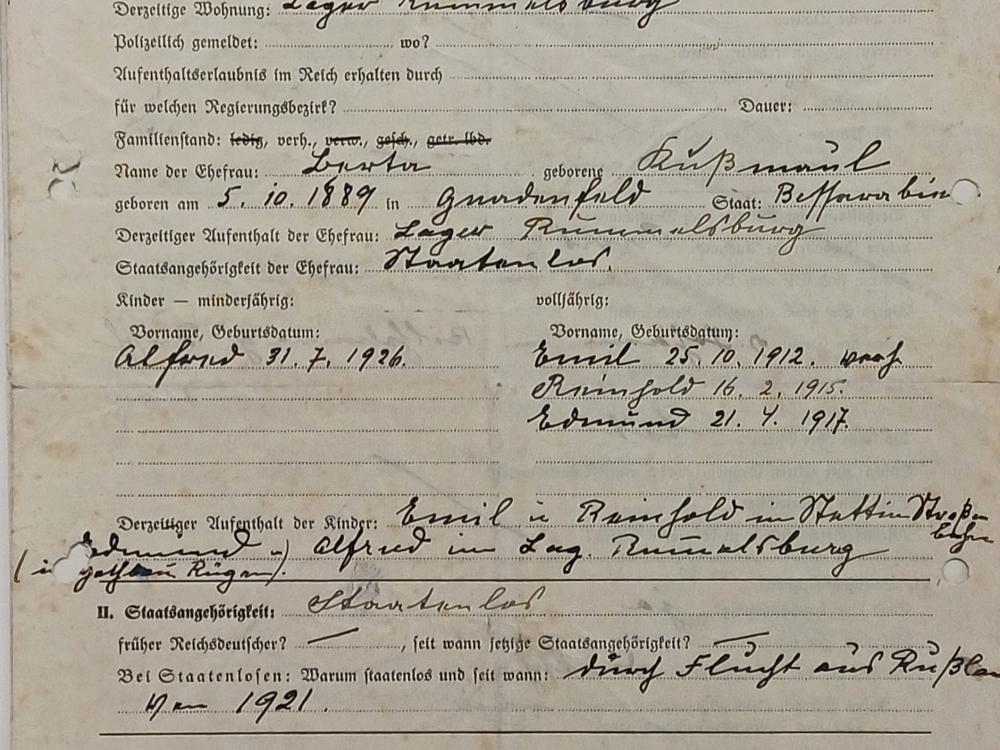 Derzeitige Wohnung: Lager Rummelsburg
Polizeilich gemeldet: wo?
Aufenthaltserlaubnis im Reich erhalten durch
für welchen Regierungsbezirk? Dauer:
Familienstand: ledig, verh., verw., gesch., getr. lbd.
Name der Ehefrau: Berta geborene Kußmaul
geboren am 5. 10. 1889 in Gnadenfeld Staat: Bessarabien
Derzeitiger Aufenthalt der Ehefrau: Lager Rummelsburg
Staatsangehörigkeit der Ehefrau: Staatenlos.
Kinder — minderjährig: volljährig:
Vorname, Geburtsdatum: Vorname, Geburtsdatum:
Alfred 31. 7. 1926. Emil 25. 10. 1912. verh
Reinhold 16. 2. 1915.
Edmund 21. 4. 1917.
Derzeitiger Aufenthalt der Kinder: Emil u Reinhold in Stettin Straßen
bahn
Edmund u) Alfred im Lag. Rummelsburg
Rügen).
II. Staatsangehörigkeit: Staatenlos
früher Reichsdeutscher? — , seit wann jetzige Staatsangehörigkeit? —
Bei Staatenlosen: Warum staatenlos und seit wann: durch Flucht aus Rußlan
1921.